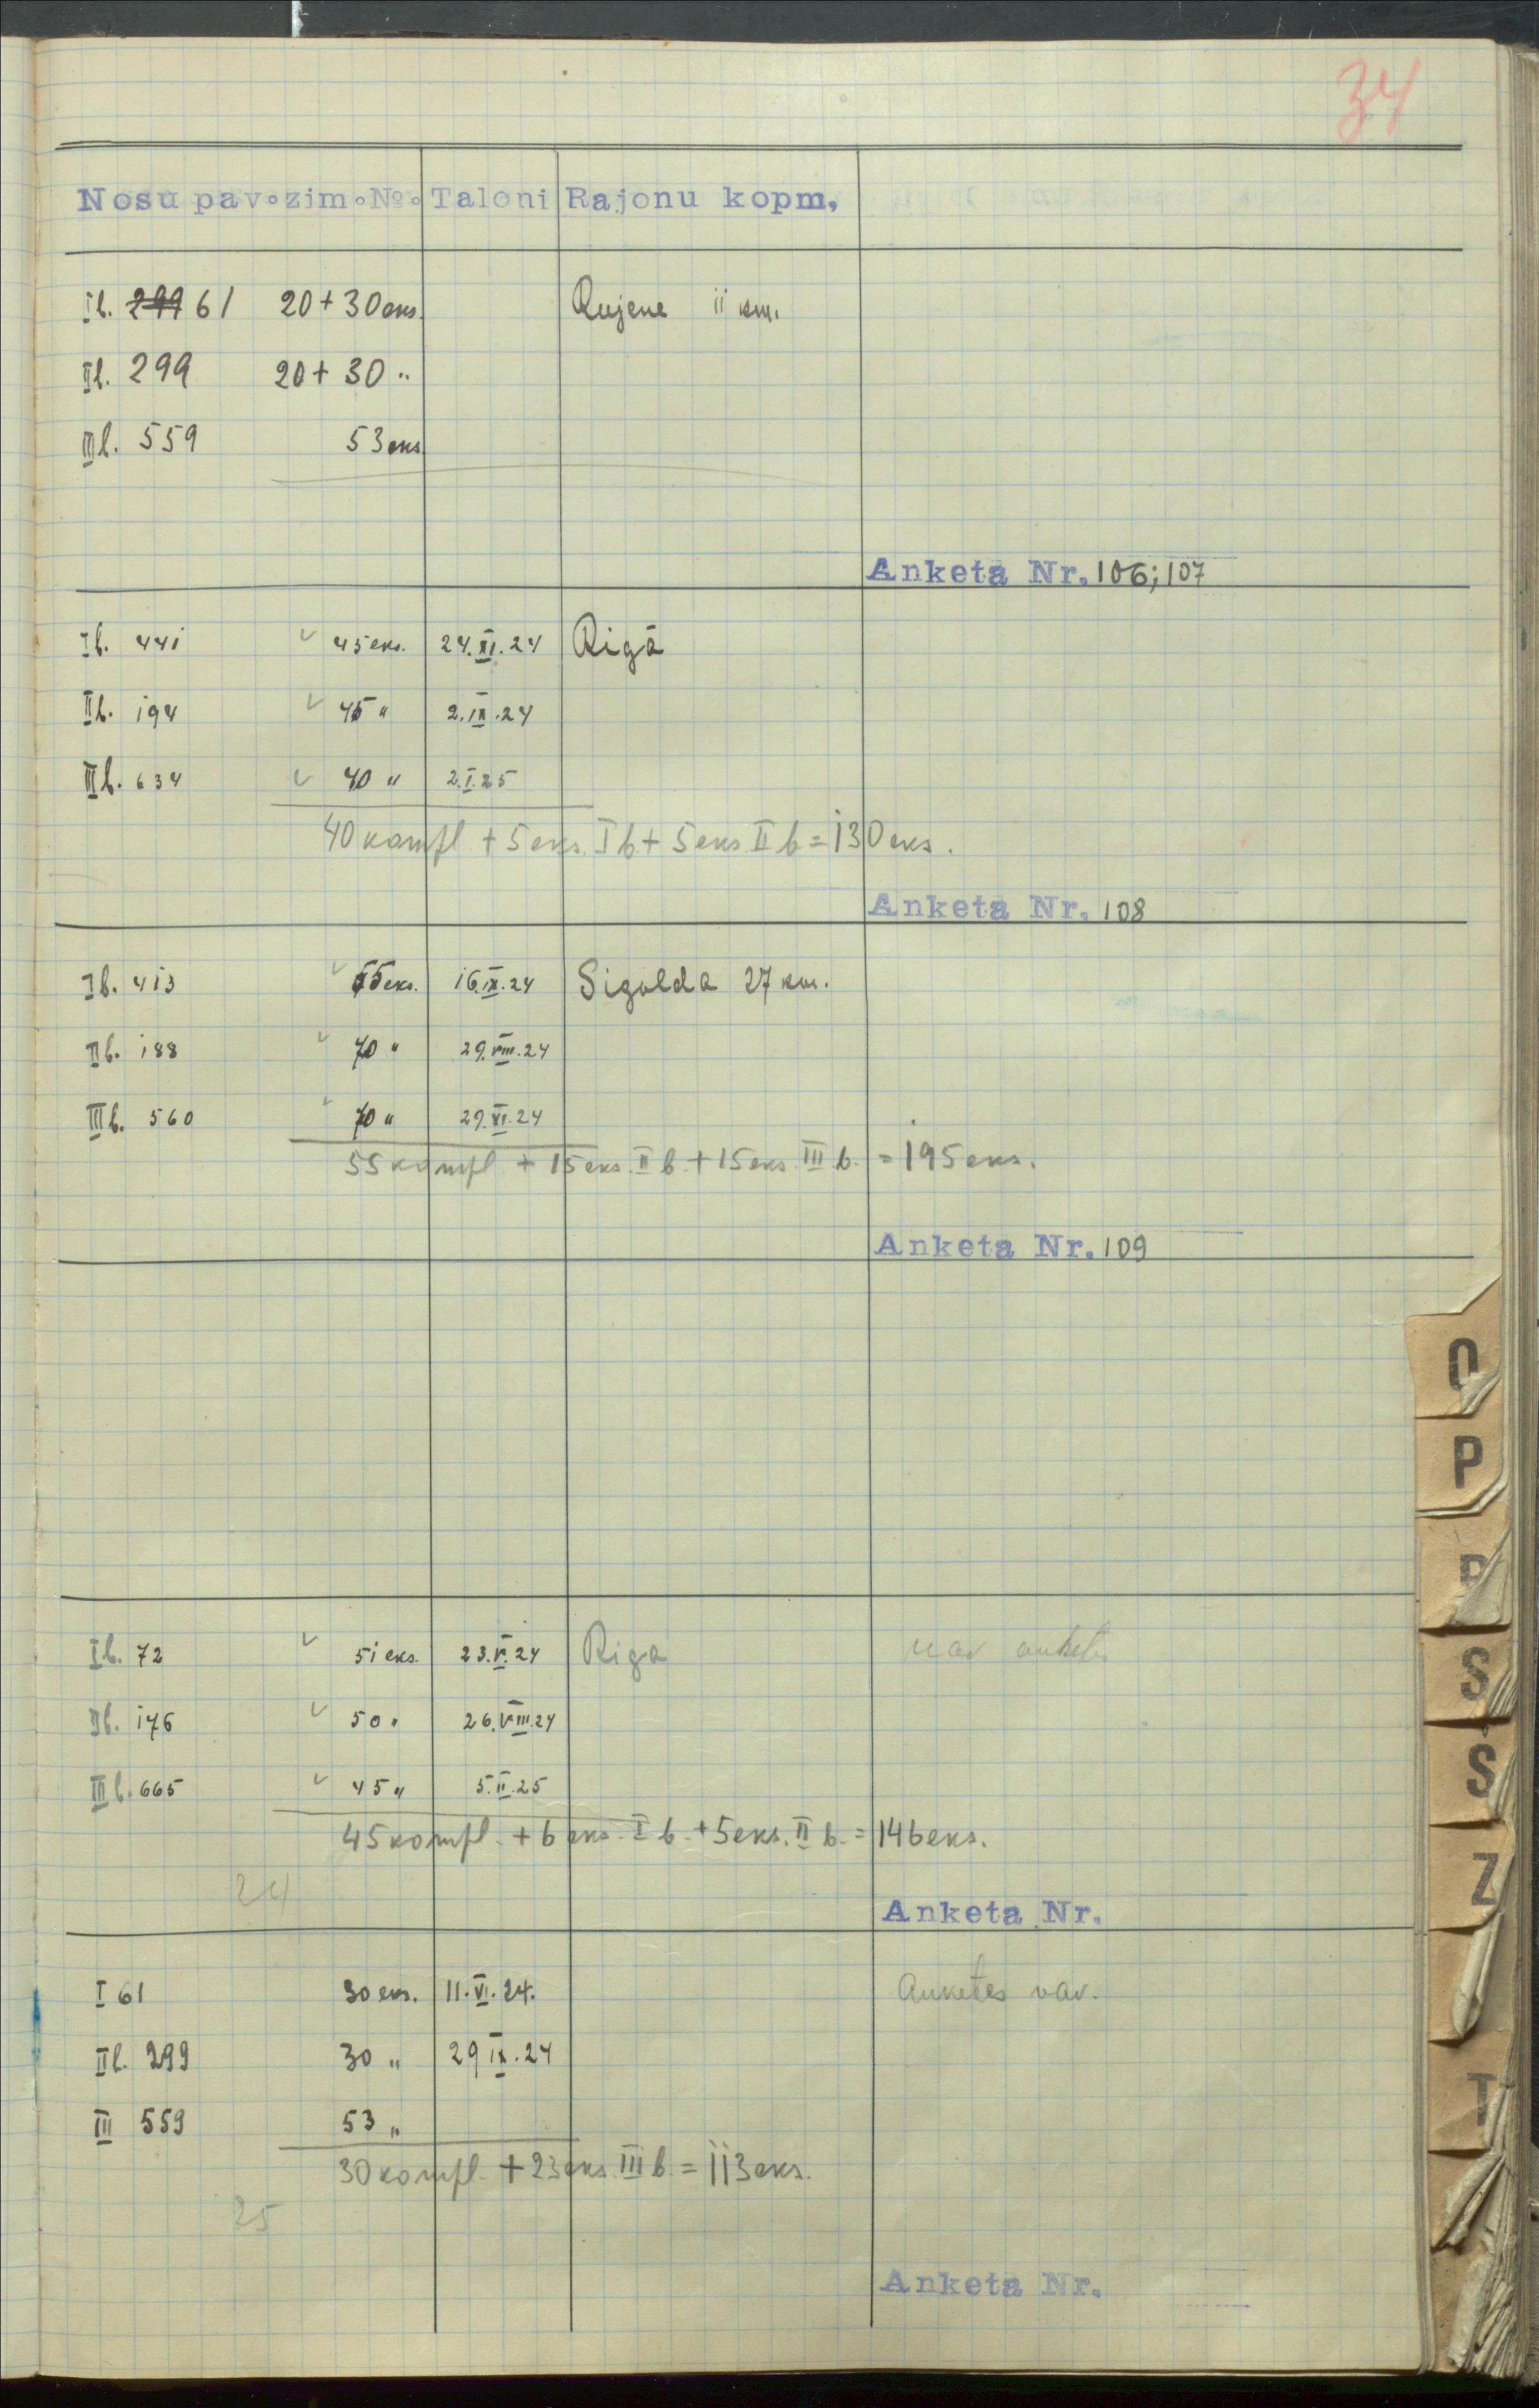 34
Nosu pav. zim. №. Taloni Rajonu kopm,
Ib. 299 61 20 + 30 eks. Rujene 11 km.
IIb. 299 20 + 30 "
IIIb. 559 53 eks
Anketa Nr. 106; 107
Ib. 441 ✓ 45 eks. 24.XI.24 Rigā
IIb. 194 ✓ 45 " 2.IX.24
IIIb. 634 ✓ 40 " 2.I.25
40 kompl + 5 eks. I b + 5 eks II b = 130 eks.
Anketa Nr. 108
Ib. 413 ✓ 55 eks. 16.IX.24 Sigulda 27 km.
IIb. 188 ✓ 70 " 29.VIII.24
IIIb. 560 ✓ 70 " 29.XI.24
55 kompl + 15 eks. II b. + 15 eks. III b. = 195 eks.
Anketa Nr. 109
Ib. 72 ✓ 51 eks. 23.V.24 Riga nav anketes
IIb. 176 ✓ 50 " 26.VIII.24
IIIb. 665 ✓ 45 " 5.II.25
45 kompl. + 6 eks. I b. + 5 eks. II b. = 146 eks.
24
Anketa Nr.
I 61 30 eks. 11.VI.24. Anketes nav.
IIb. 299 30 " 29 IX.24
III 559 53 "
30 kompl. + 23 eks III b. = 113 eks.
25
Anketa Nr.
O
P
R
S
Š
Z
T